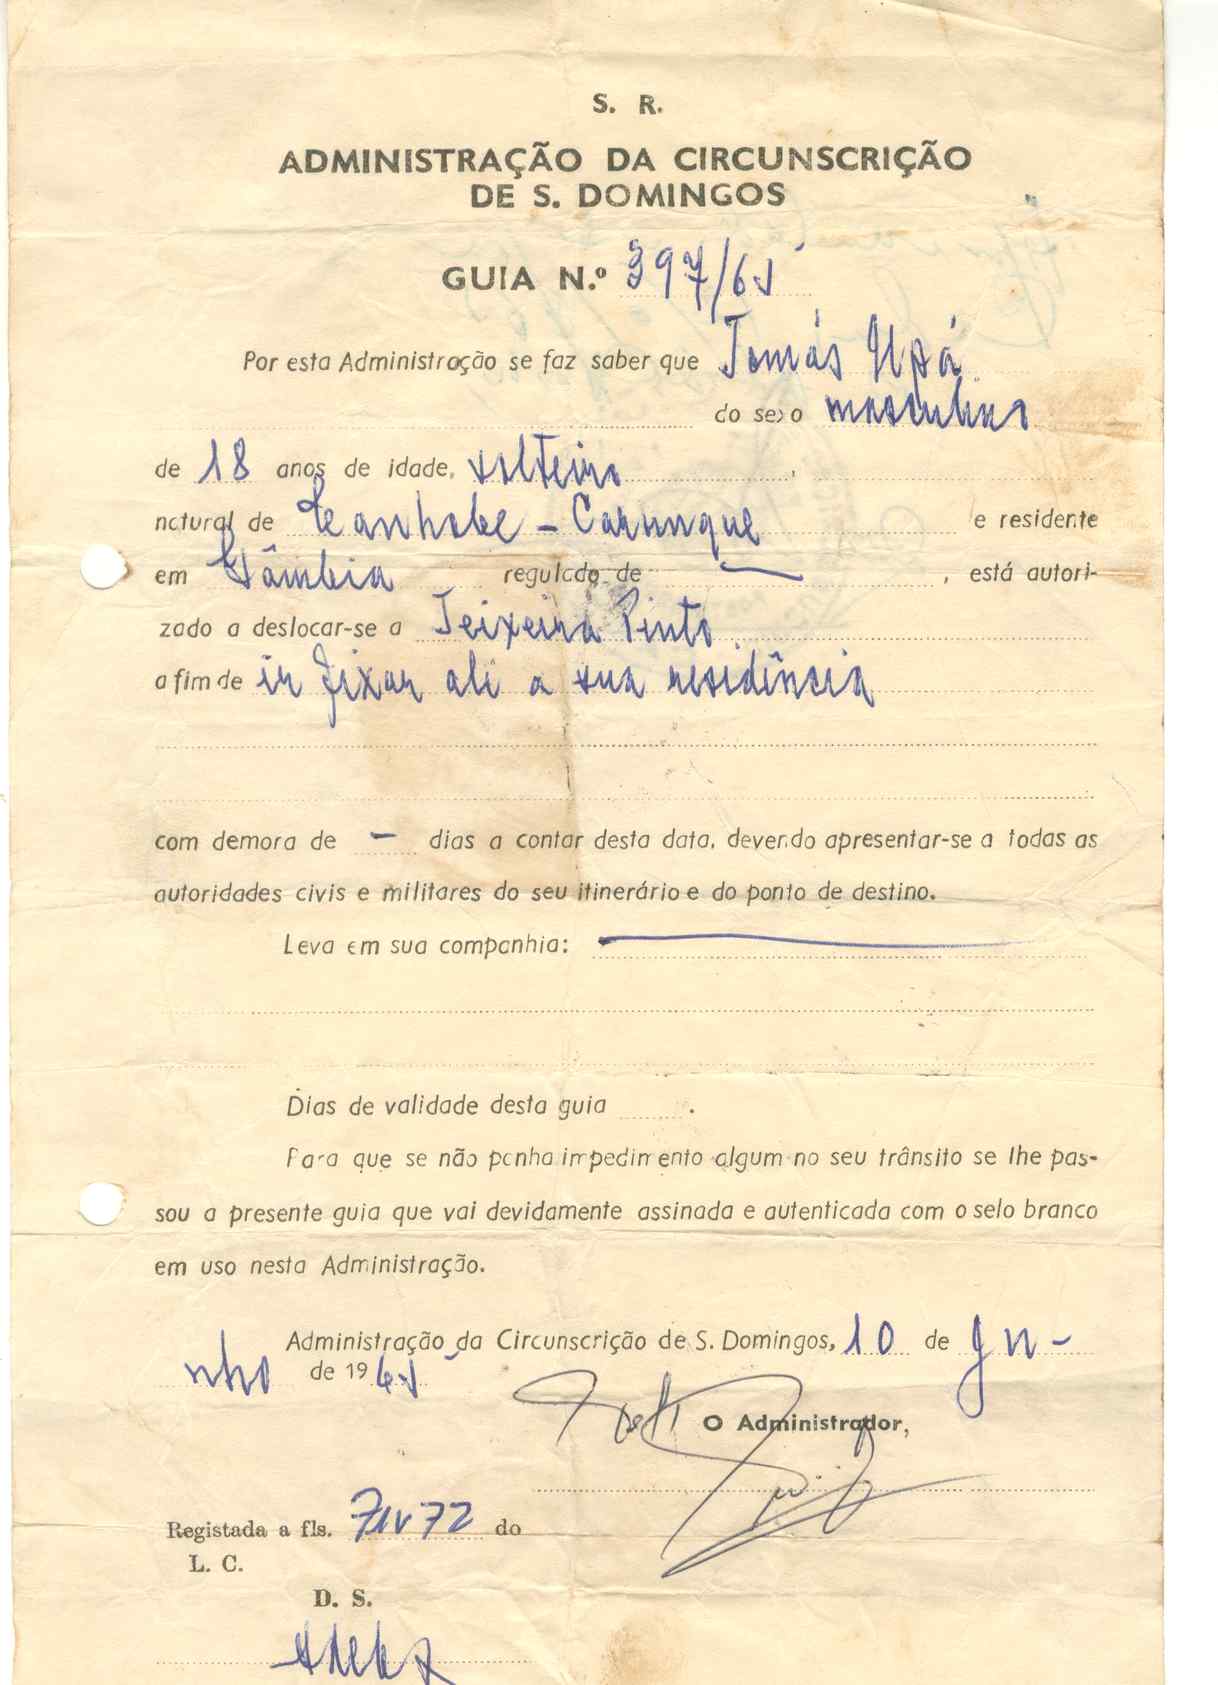 S. R.
ADMINISTRAÇÃO DA CIRCUNSCRIÇÃO
DE S. DOMINGOS
GUIA N.º 397/65
Por esta Administração se faz saber que Tomás Upá
do sexo masculino
de 18 anos de idade, solteiro,
natural de Canhobe - Carunque e residente
em Gâmbia regulado de —, está autori-
zado a deslocar-se a Teixeira Pinto
a fim de ir fixar ali a sua residência
com demora de — dias a contar desta data, devendo apresentar-se a todas as
autoridades civis e militares do seu itinerário e do ponto de destino.
Leva em sua companhia: —
Dias de validade desta guia .
Para que se não ponha impedimento algum no seu trânsito se lhe pas-
sou a presente guia que vai devidamente assinada e autenticada com o selo branco
em uso nesta Administração.
Administração da Circunscrição de S. Domingos, 10 de Ju-
nho de 1965
O Administrador,
Registada a fls. 71v 72 do
L. C.
D. S.